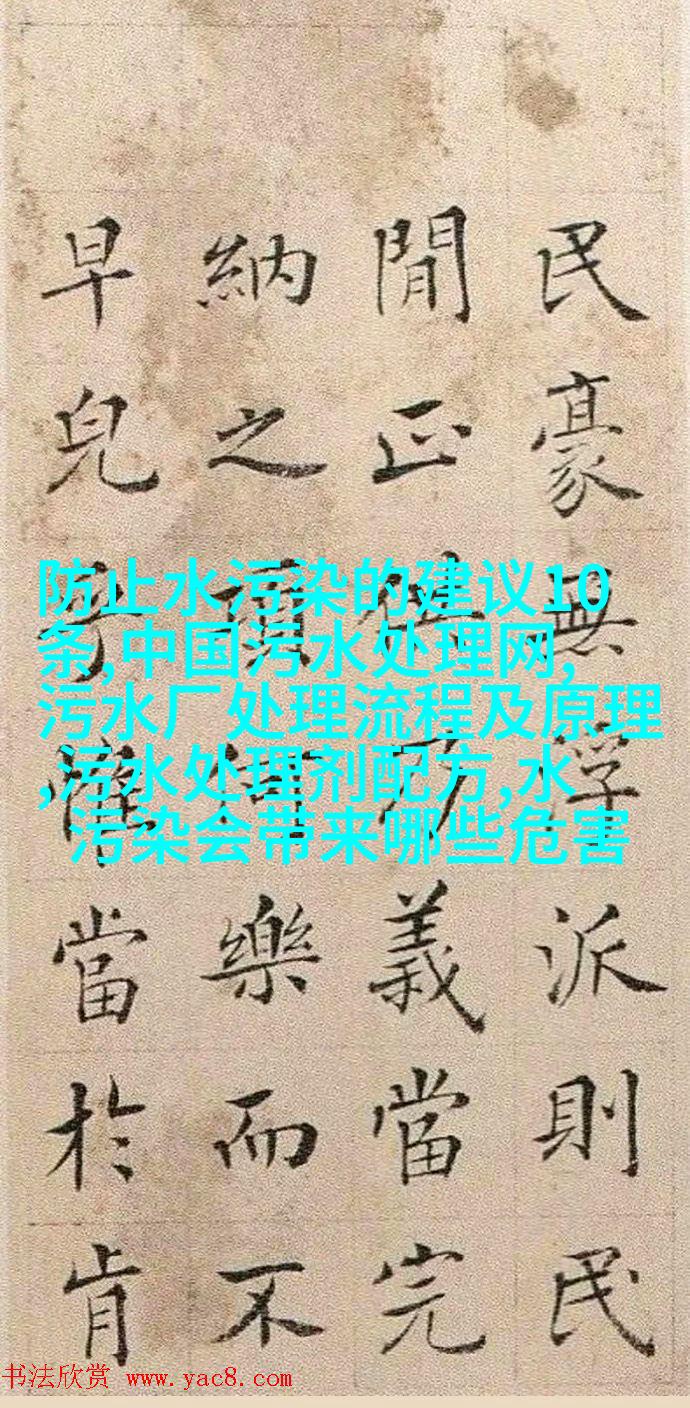 民豪無浮派則民
閒正供乃義當完
納之樂而不
早兒當於肯
防止水污染的建议10
条,中国污水处理网,
污水厂处理流程及原理
,污水处理剂配方,水
污染会带来哪些危害
书法欣赏 www.yac8.com